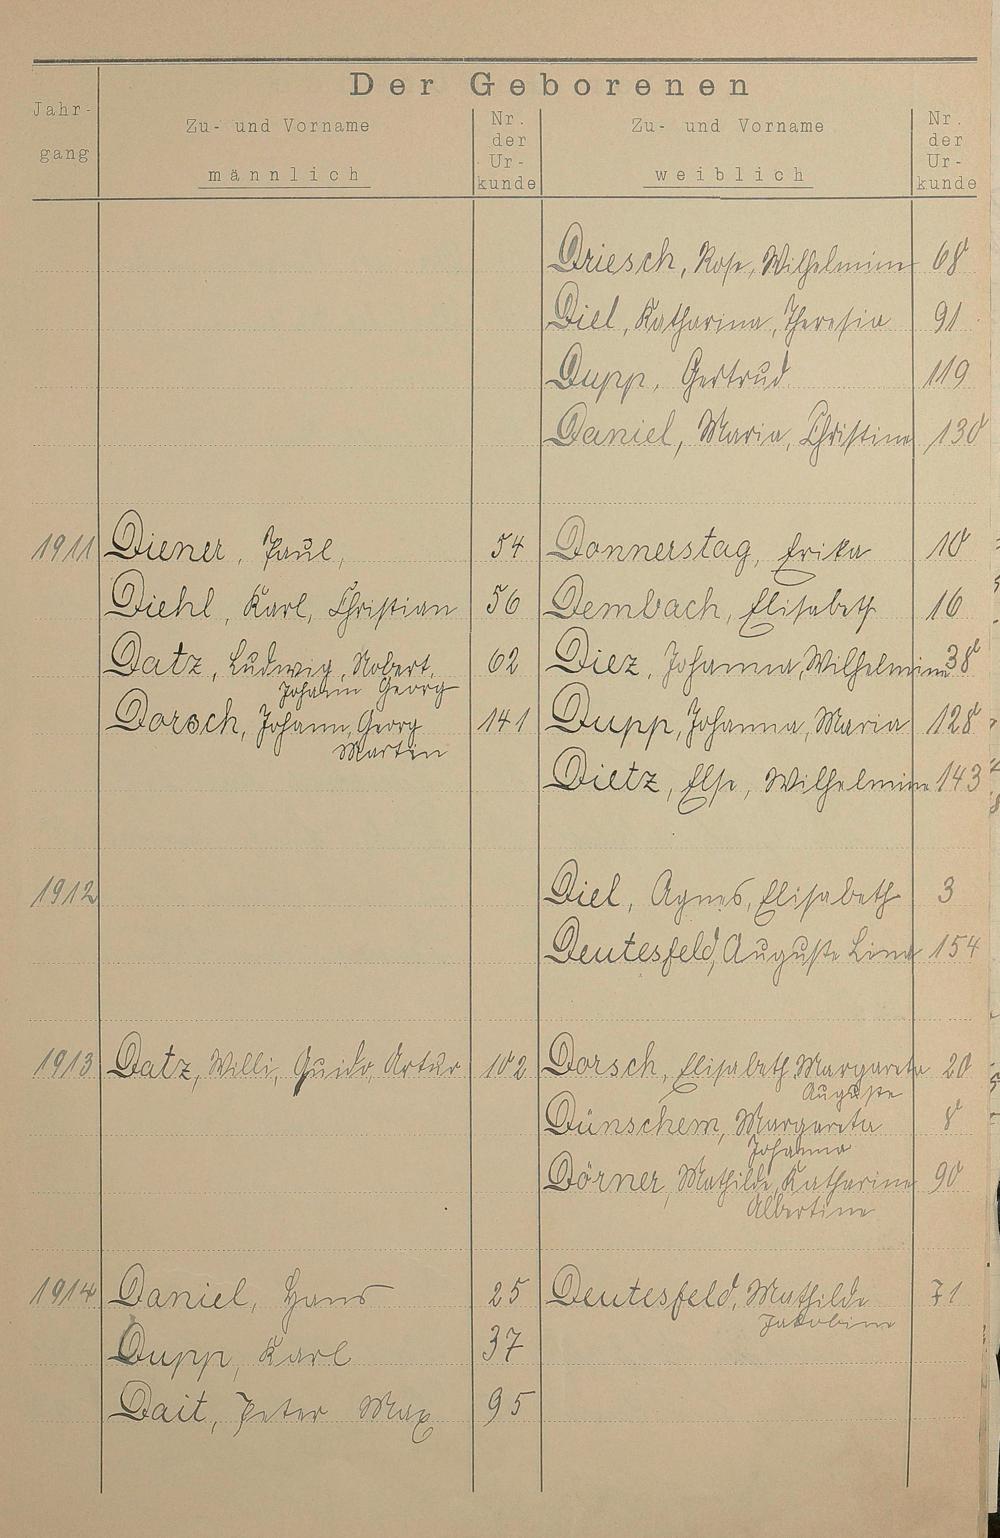 Der Geborenen
Jahr-
gang
Zu- und Vorname
männlich
Nr.
der
Ur-
kunde
Zu- und Vorname
weiblich
Nr.
der
Ur-
kunde
Driesch, Rosa, Wilhelmine 68
Diel, Katharina, Theresia 91
Dupp, Gertrud 119
Daniel, Maria, Christine 130
1911 Diener, Paul, 54 Donnerstag, Erika 10
Diehl, Karl, Christian 56 Dembach, Elisabeth 16
Datz, Ludwig, Robert, 62 Diez, Johanna, Wilhelmine 38
Johann Georg
Dorsch, Johann, Georg 141 Dupp, Johanna, Maria 128
Martin
Dietz, Else, Wilhelmine 143
1912 Diel, Agnes, Elisabeth 3
Deutesfeld, Auguste Lina 154
1913 Datz, Willi, Guido, Artur 102 Dorsch, Elisabeth Margareta 20
Auguste
Dünschem, Margareta 8
Johanna
Dörner, Mathilde, Katharine 90
Albertine
1914 Daniel, Hans 25 Deutesfeld, Mathilde 71
Jakobine
Dupp, Karl 37
Dait, Peter Max 95